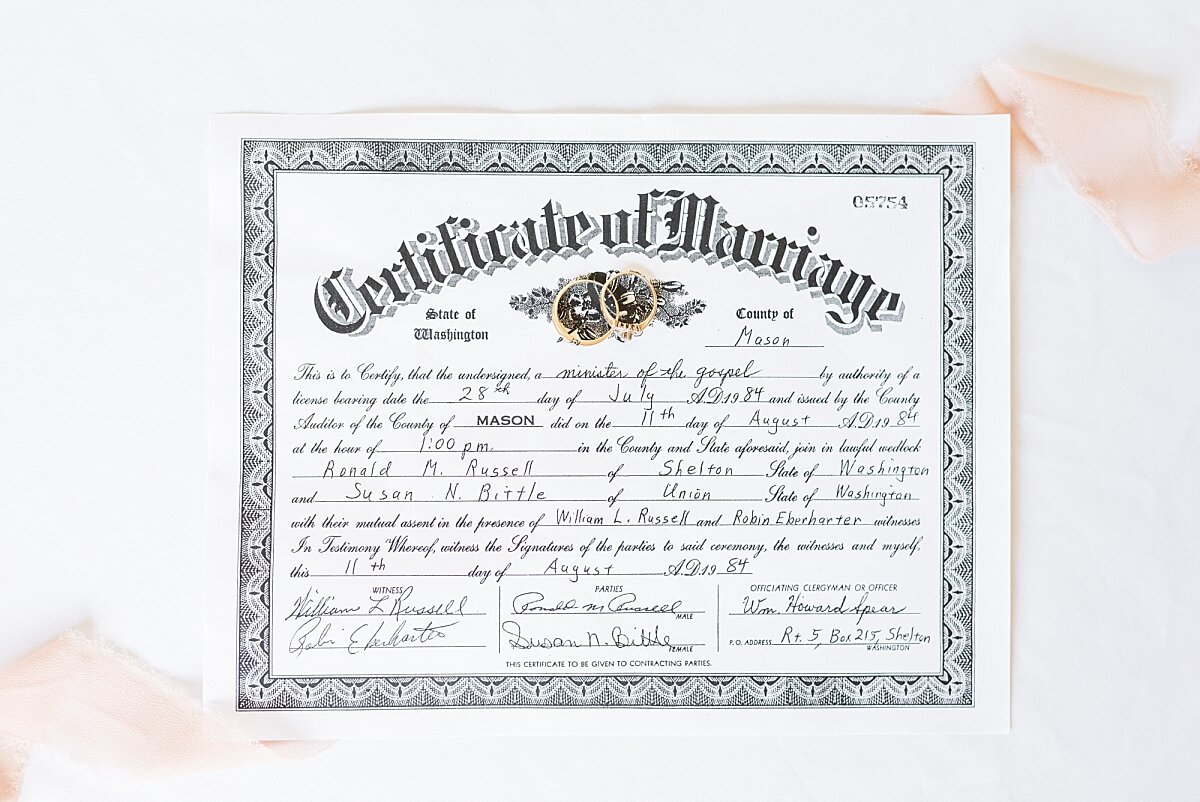 05754
Certificate of Marriage
State of Washington
County of Mason
This is to Certify, that the undersigned, a minister of the gospel by authority of a
license bearing date the 28th day of July A.D. 1984 and issued by the County
Auditor of the County of MASON did on the 11th day of August A.D. 1984
at the hour of 1:00 pm. in the County and State aforesaid, join in lawful wedlock
Ronald M. Russell of Shelton State of Washington
and Susan N. Bittle of Union State of Washington
with their mutual assent in the presence of William L. Russell and Robin Eberharter witnesses
In Testimony Whereof, witness the Signatures of the parties to said ceremony, the witnesses and myself,
this 11th day of August A.D. 1984
WITNESS
William L Russell
Robin Eberharter
PARTIES
Ronald M Russell
MALE
Susan N. Bittle
FEMALE
OFFICIATING CLERGYMAN OR OFFICER
Wm. Howard Spear
P.O. ADDRESS Rt. 5, Box 215, Shelton
WASHINGTON
THIS CERTIFICATE TO BE GIVEN TO CONTRACTING PARTIES.